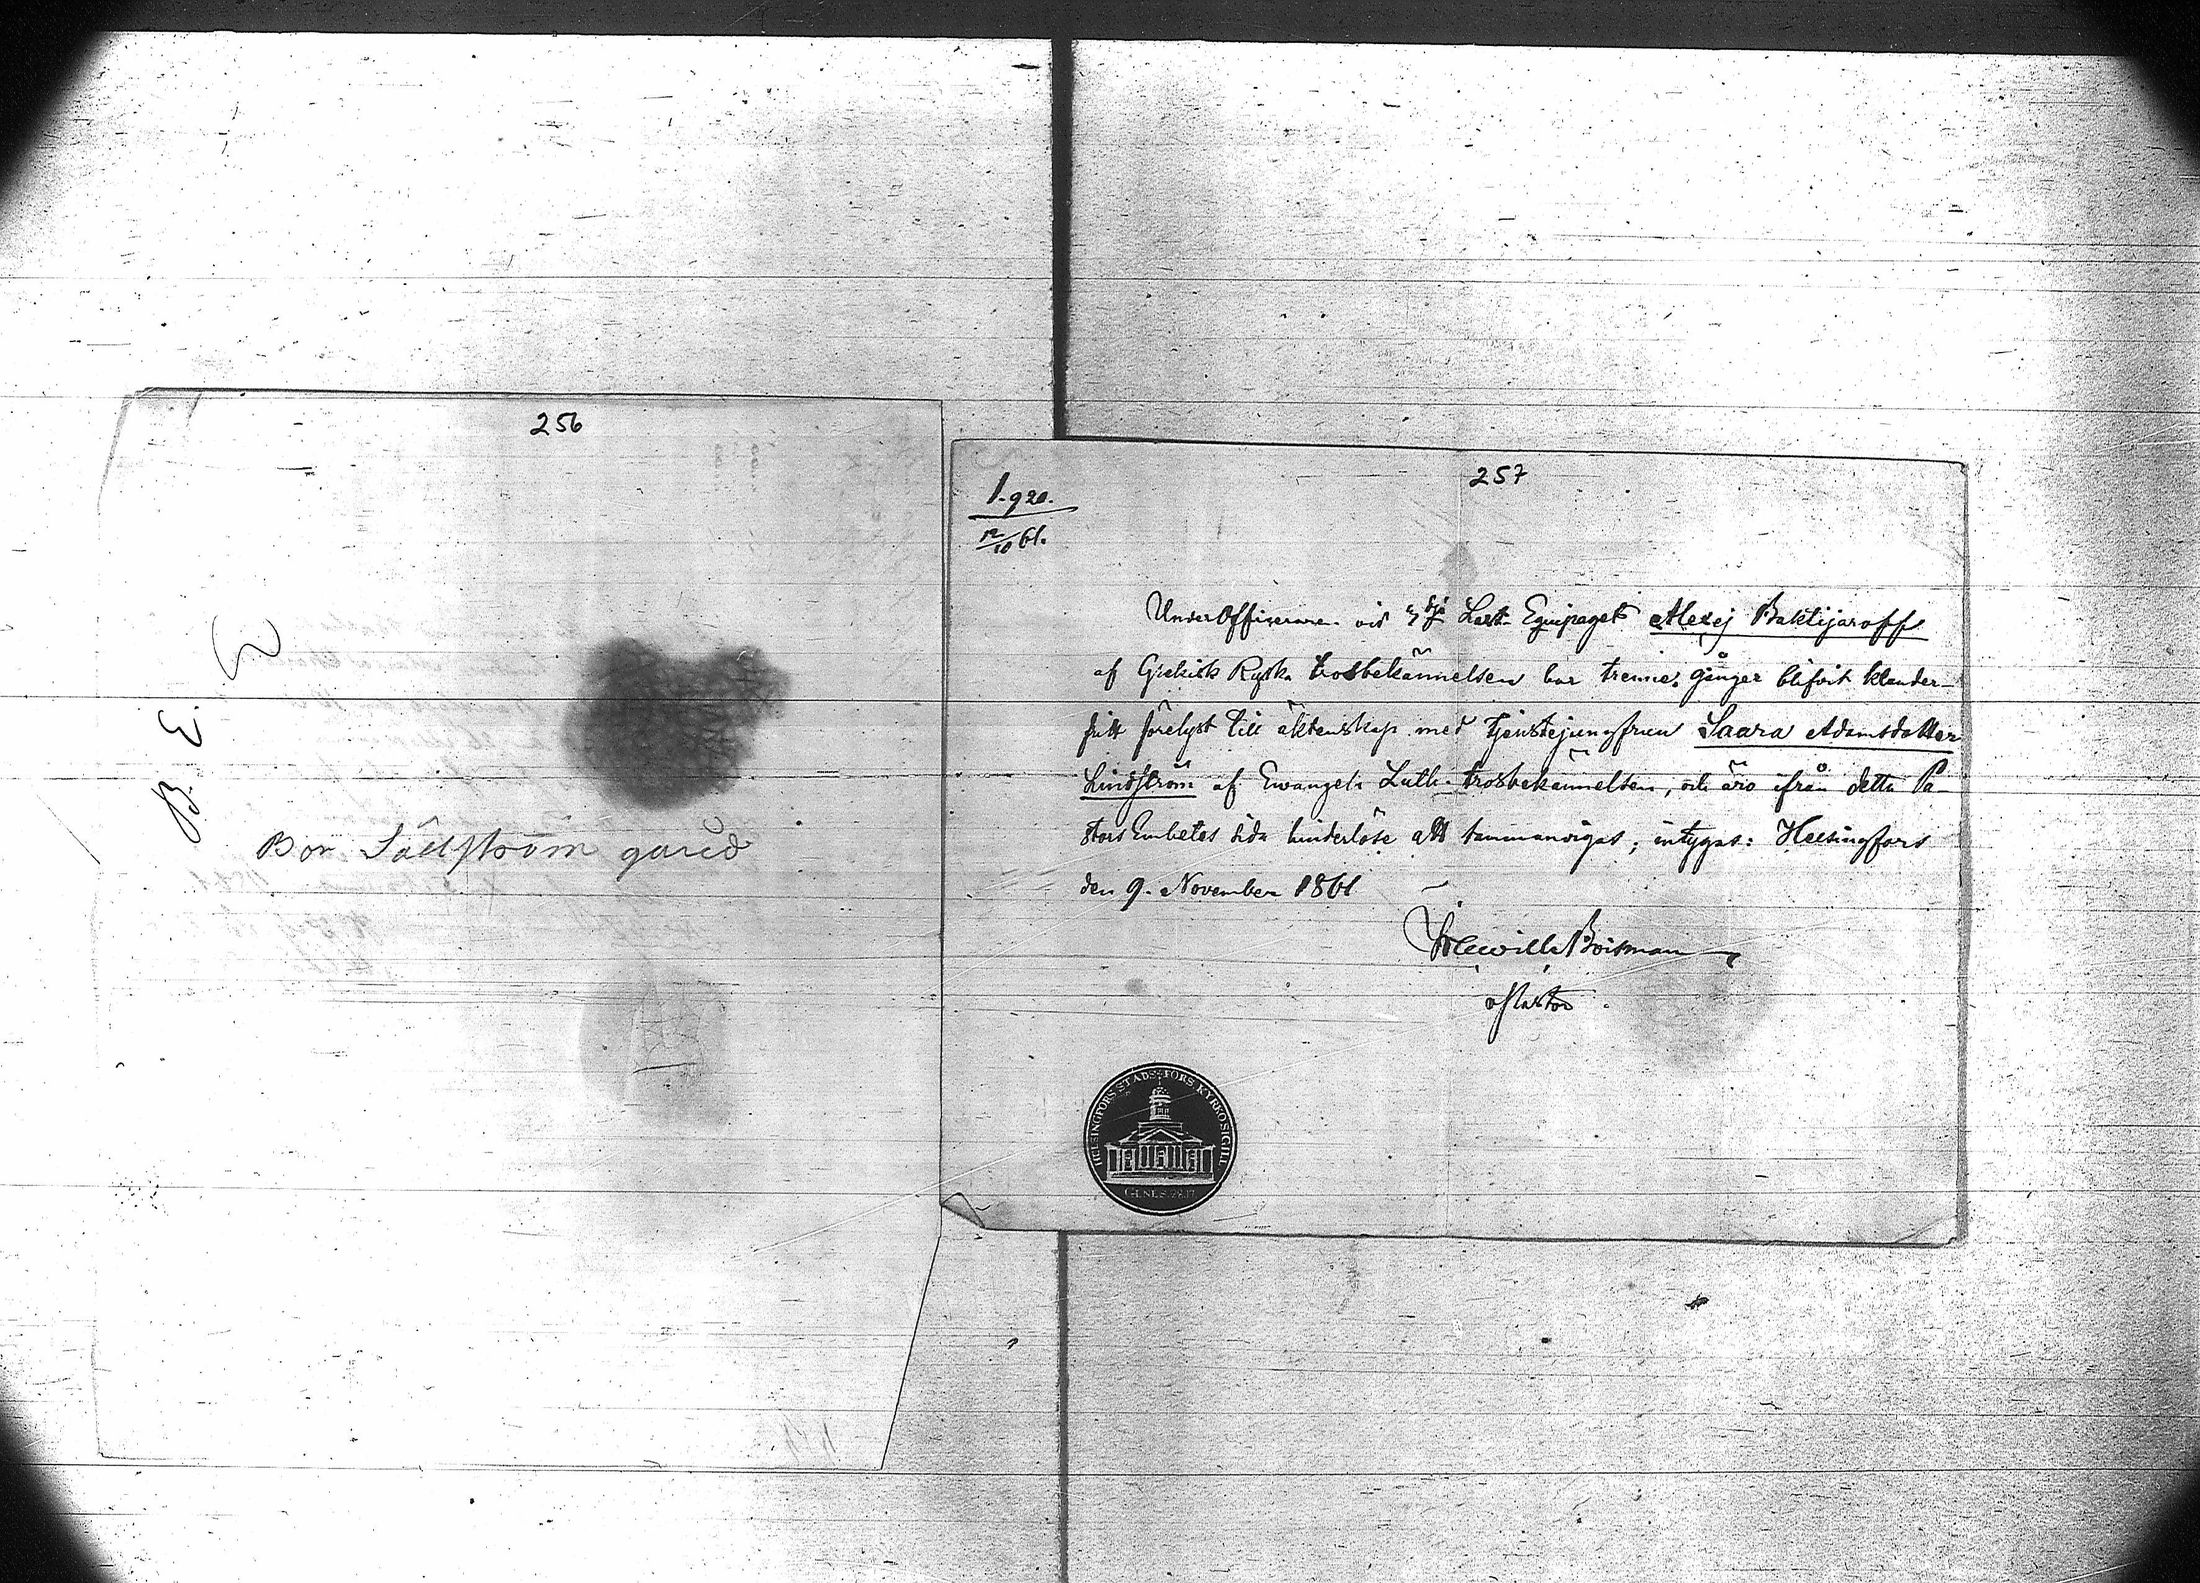 256
Bor Sällström gård
257
1.920.
12/10 61.
UnderOfficeraren vid 3dje Last. Equipaget Alexej Baktijaroff
af Grekisk Ryska trosbekännelsen har trenne gånger blifvit klander-
fritt förelyst till äktenskap med tjenstejungfrun Saara Adamsdotter
Lindström af Ewangel. Luth. trosbekännelsen, och äro ifrån detta Pa-
storsEmbetes sida hinderlöse att sammanvigas; intygas: Helsingfors
den 9. November 1861
Boisman
Pastor
HELSINGFORS STADS FÖRS. KYRKOSIGILL
GENES. 28.17.